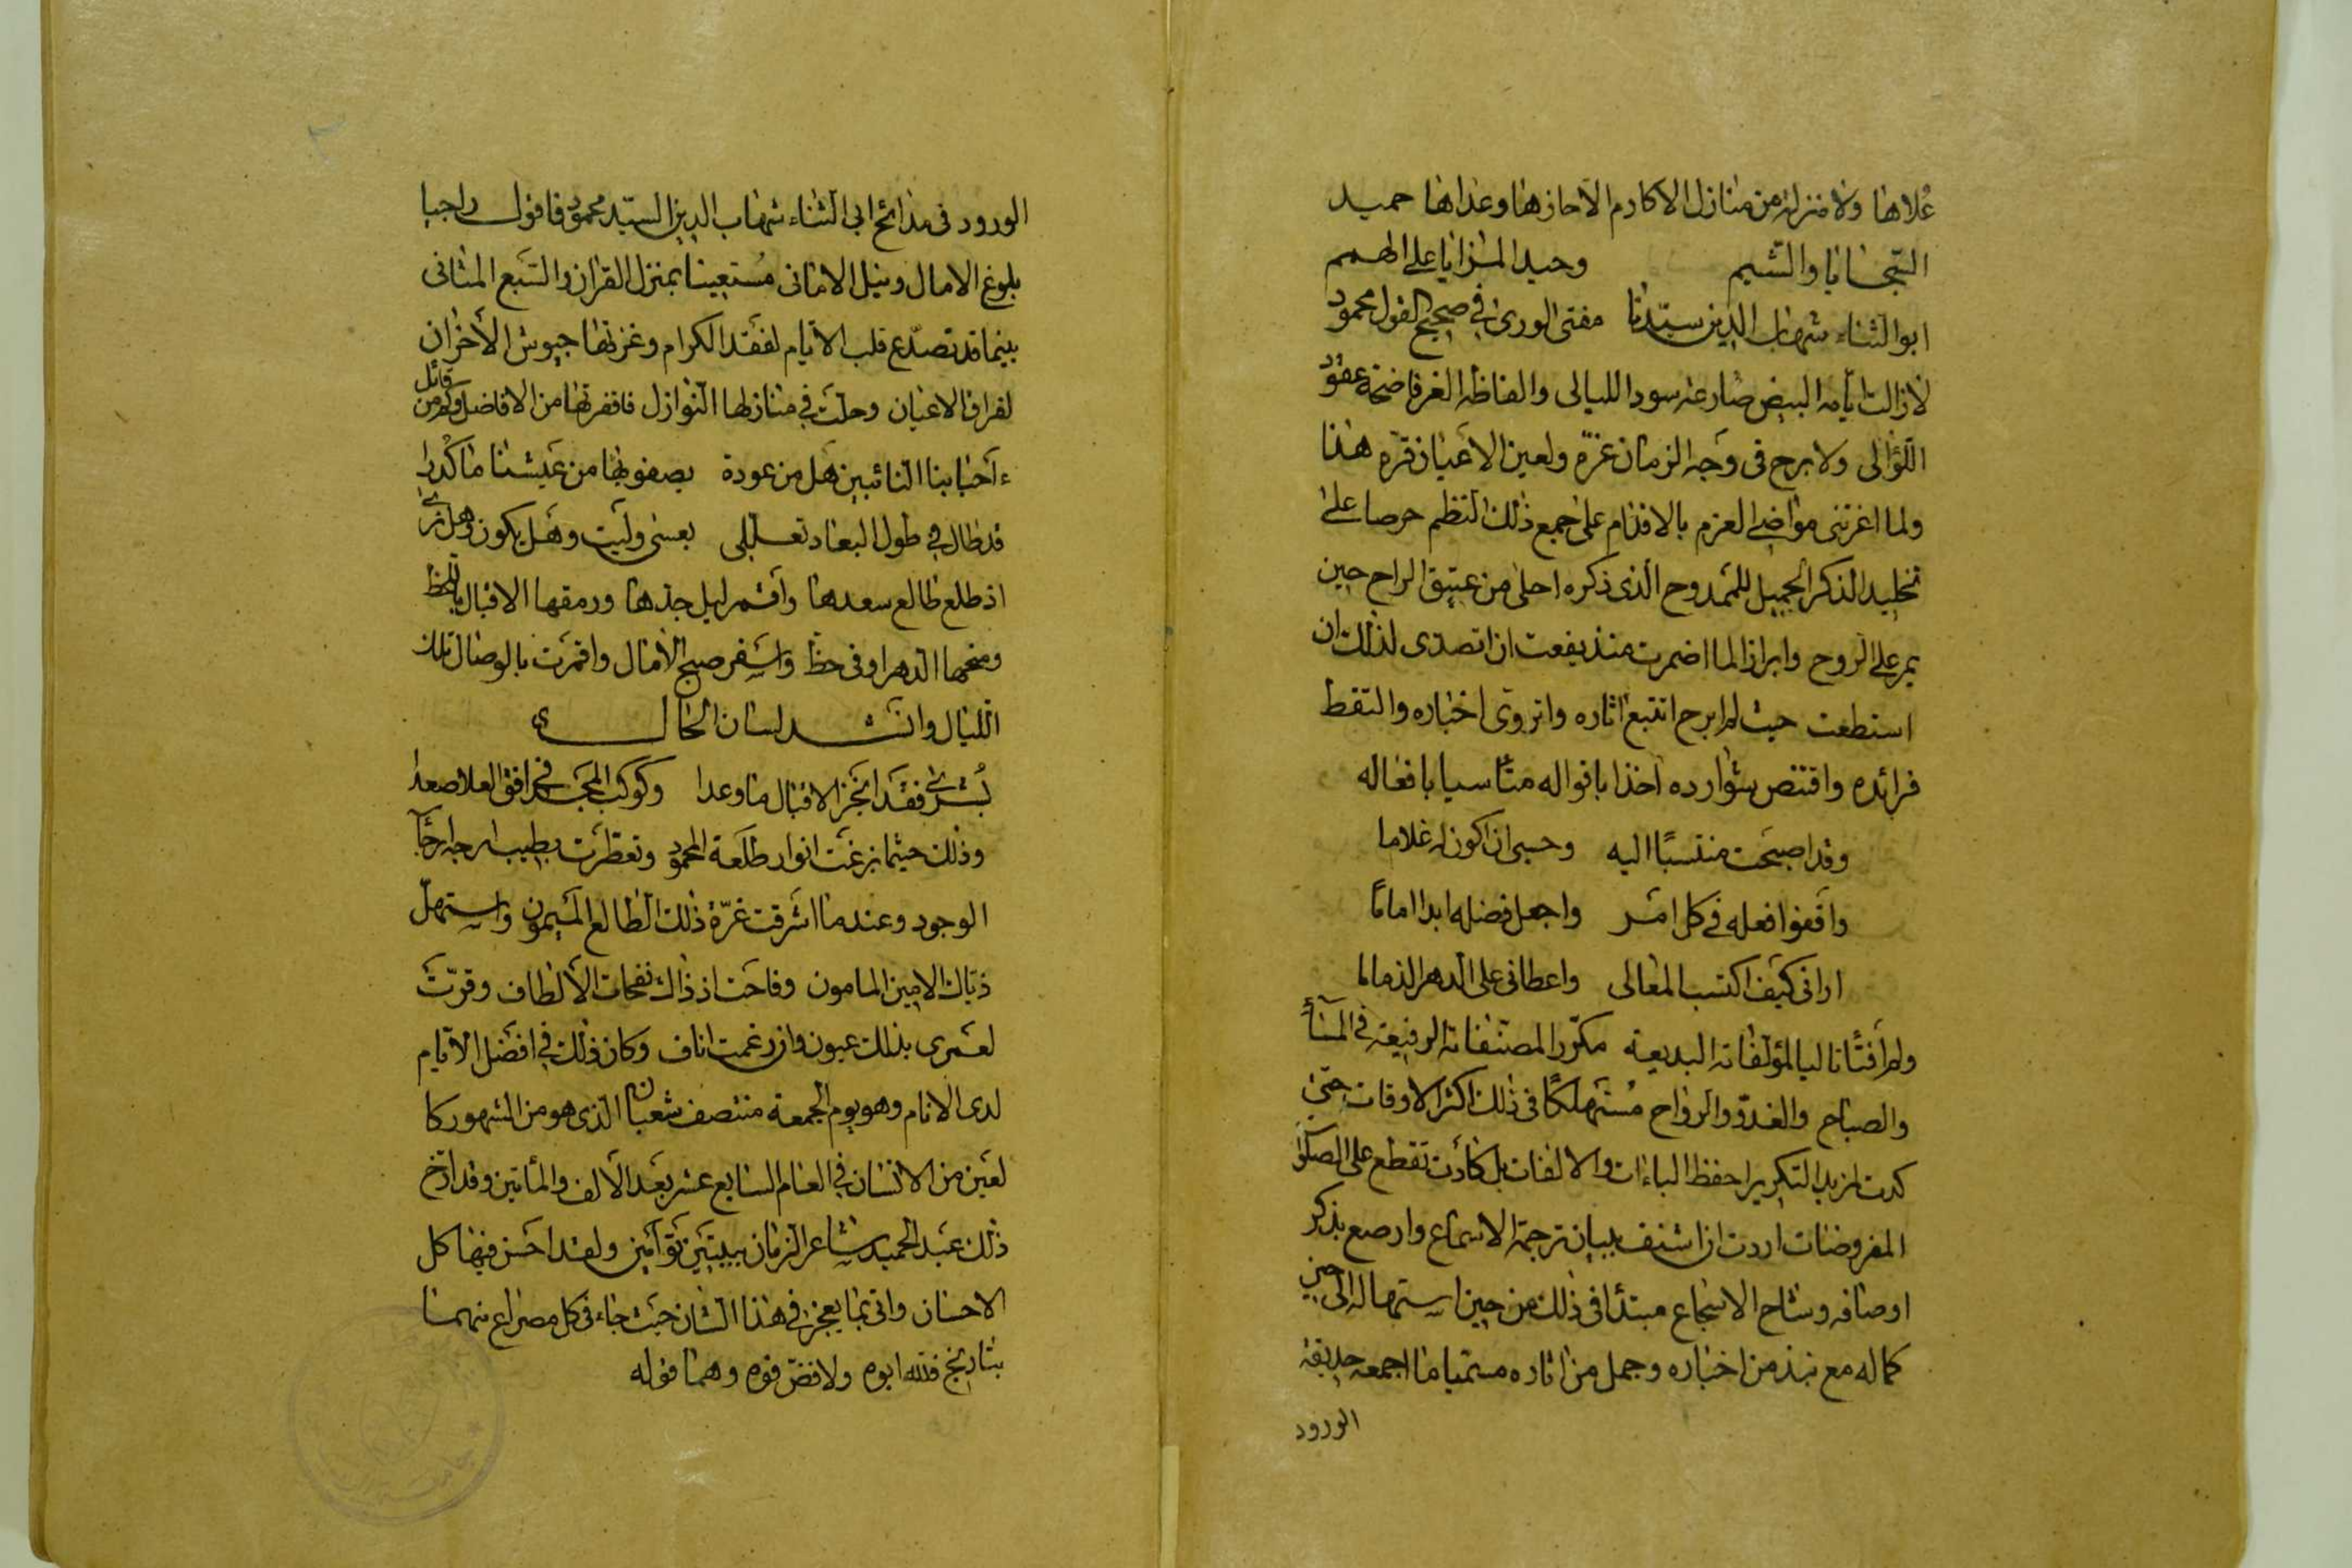 علاها ولا منزلة من منازل الاكارم الا حازها وعداها حميد
السجايا والشيم وحيد المزايا على الهمم
ابو الثناء شهاب الدين سيدنا مفتى الورى في صحيح القول محمود
لا زالت أيامه البيض ضارعه سود الليالى والفاظه الغر فاضحة عقود
اللؤالى ولا برح فى وجه الزمان غرّة ولعين الاعيان قرّة هذا
ولما اغرتنى مواضى العزم بالاقدام على جمع ذلك النظم حرصا على
تخليد الذكر الجميل للممدوح الذى ذكره احلى من عتيق الراح حين
يمر على الروح وابرازا لما اضمرت منذ يفعت ان اتصدى لذلك ان
استطعت حيث لم ابرح اتتبع اثاره واتروى اخباره والتقط
فرائده واقتنص شوارده آخذا باقواله متأسيا بافعاله
وقد اصبحت منتسبًا اليه وحسبى ان اكون له غلاما
واقفوا فعله في كل امر واجعل فضله ابدا امامًا
ارانى كيف اكتسب المعالى واعطانى على الدهر الذماما
ولم أفتأ تاليا لمؤلفاته البديعة مكرّر المصنفاته الرفيعة في المسآء
والصباح والغدوّ والرواح مُستهلكًا فى ذلك اكثر الاوقات حتى
كدت لمزيد التكرير احفظ الباءات والالفات بل كادت تقطع على الصلوات
المفروضات اردت ان اشنف ببيان ترجمته الاسماع وارصع بذكر
اوصافه وشاح الاسجاع مبتدئا فى ذلك من حين استهلاله الى حين
كماله مع نبذ من اخباره وجمل من اثاره مسميا ما اجمعه حديقة
الورود
الورود فى مدائح ابى الثناء شهاب الدين السيّد محمود فاقول راجيا
بلوغ الامال ونيل الامانى مستعينا بمنزل القران والسّبع المثانى
بينما قد تصدّع قلب الايام لفقد الكرام وغزتها جيوش الأحزان
لفراق الاعيان وحلّت في منازلها النوازل فاقفرتها من الافاضل وكم من قائل
ءأحبابنا النائبين هل من عودة يصفو بها من عيشنا ما كدرا
قد طال في طول البعاد تعللى بعسى وليت وهل يكون وهل ترى
اذ طلع طالع سعدها وأقمر ليل جدها ورمقها الاقبال باللحظ
ومنحها الدهر اوفى حظ واسفر صبح الأمال واقمرت بالوصال تلك
الليال وانشد لسان الحال
بُشرى فقد انجز الاقبال ما وعدا وكوكب المجد في افق العلا صعدا
وذلك حيثما بزغت انوار طلعة المحمود وتعطرت بطيب ارجه ارجآء
الوجود وعندما اشرقت غرّة ذلك الطالع الميمون واستهلّ
ذياك الامين المامون وفاحت اذ ذاك نفحات الألطاف وقرّت
لعمرى بذلك عيون وان رغمت اناف وكان ذلك في افضل الايام
لدى الانام وهو يوم الجمعة منتصف شعبان الذى هو من الشهور كا
لعين من الانسان في العام السابع عشر بعد الألف والمأتين وقد ارّخ
ذلك عبد الحميد شاعر الزمان ببيتين توأمين ولقد احسن فيها كل
الاحسان واتى بما يعجز في هذا الشان حيث جاء فى كل مصراع منهما
بتاريخ فلله ابوه ولا فضّ فوه وهما قوله